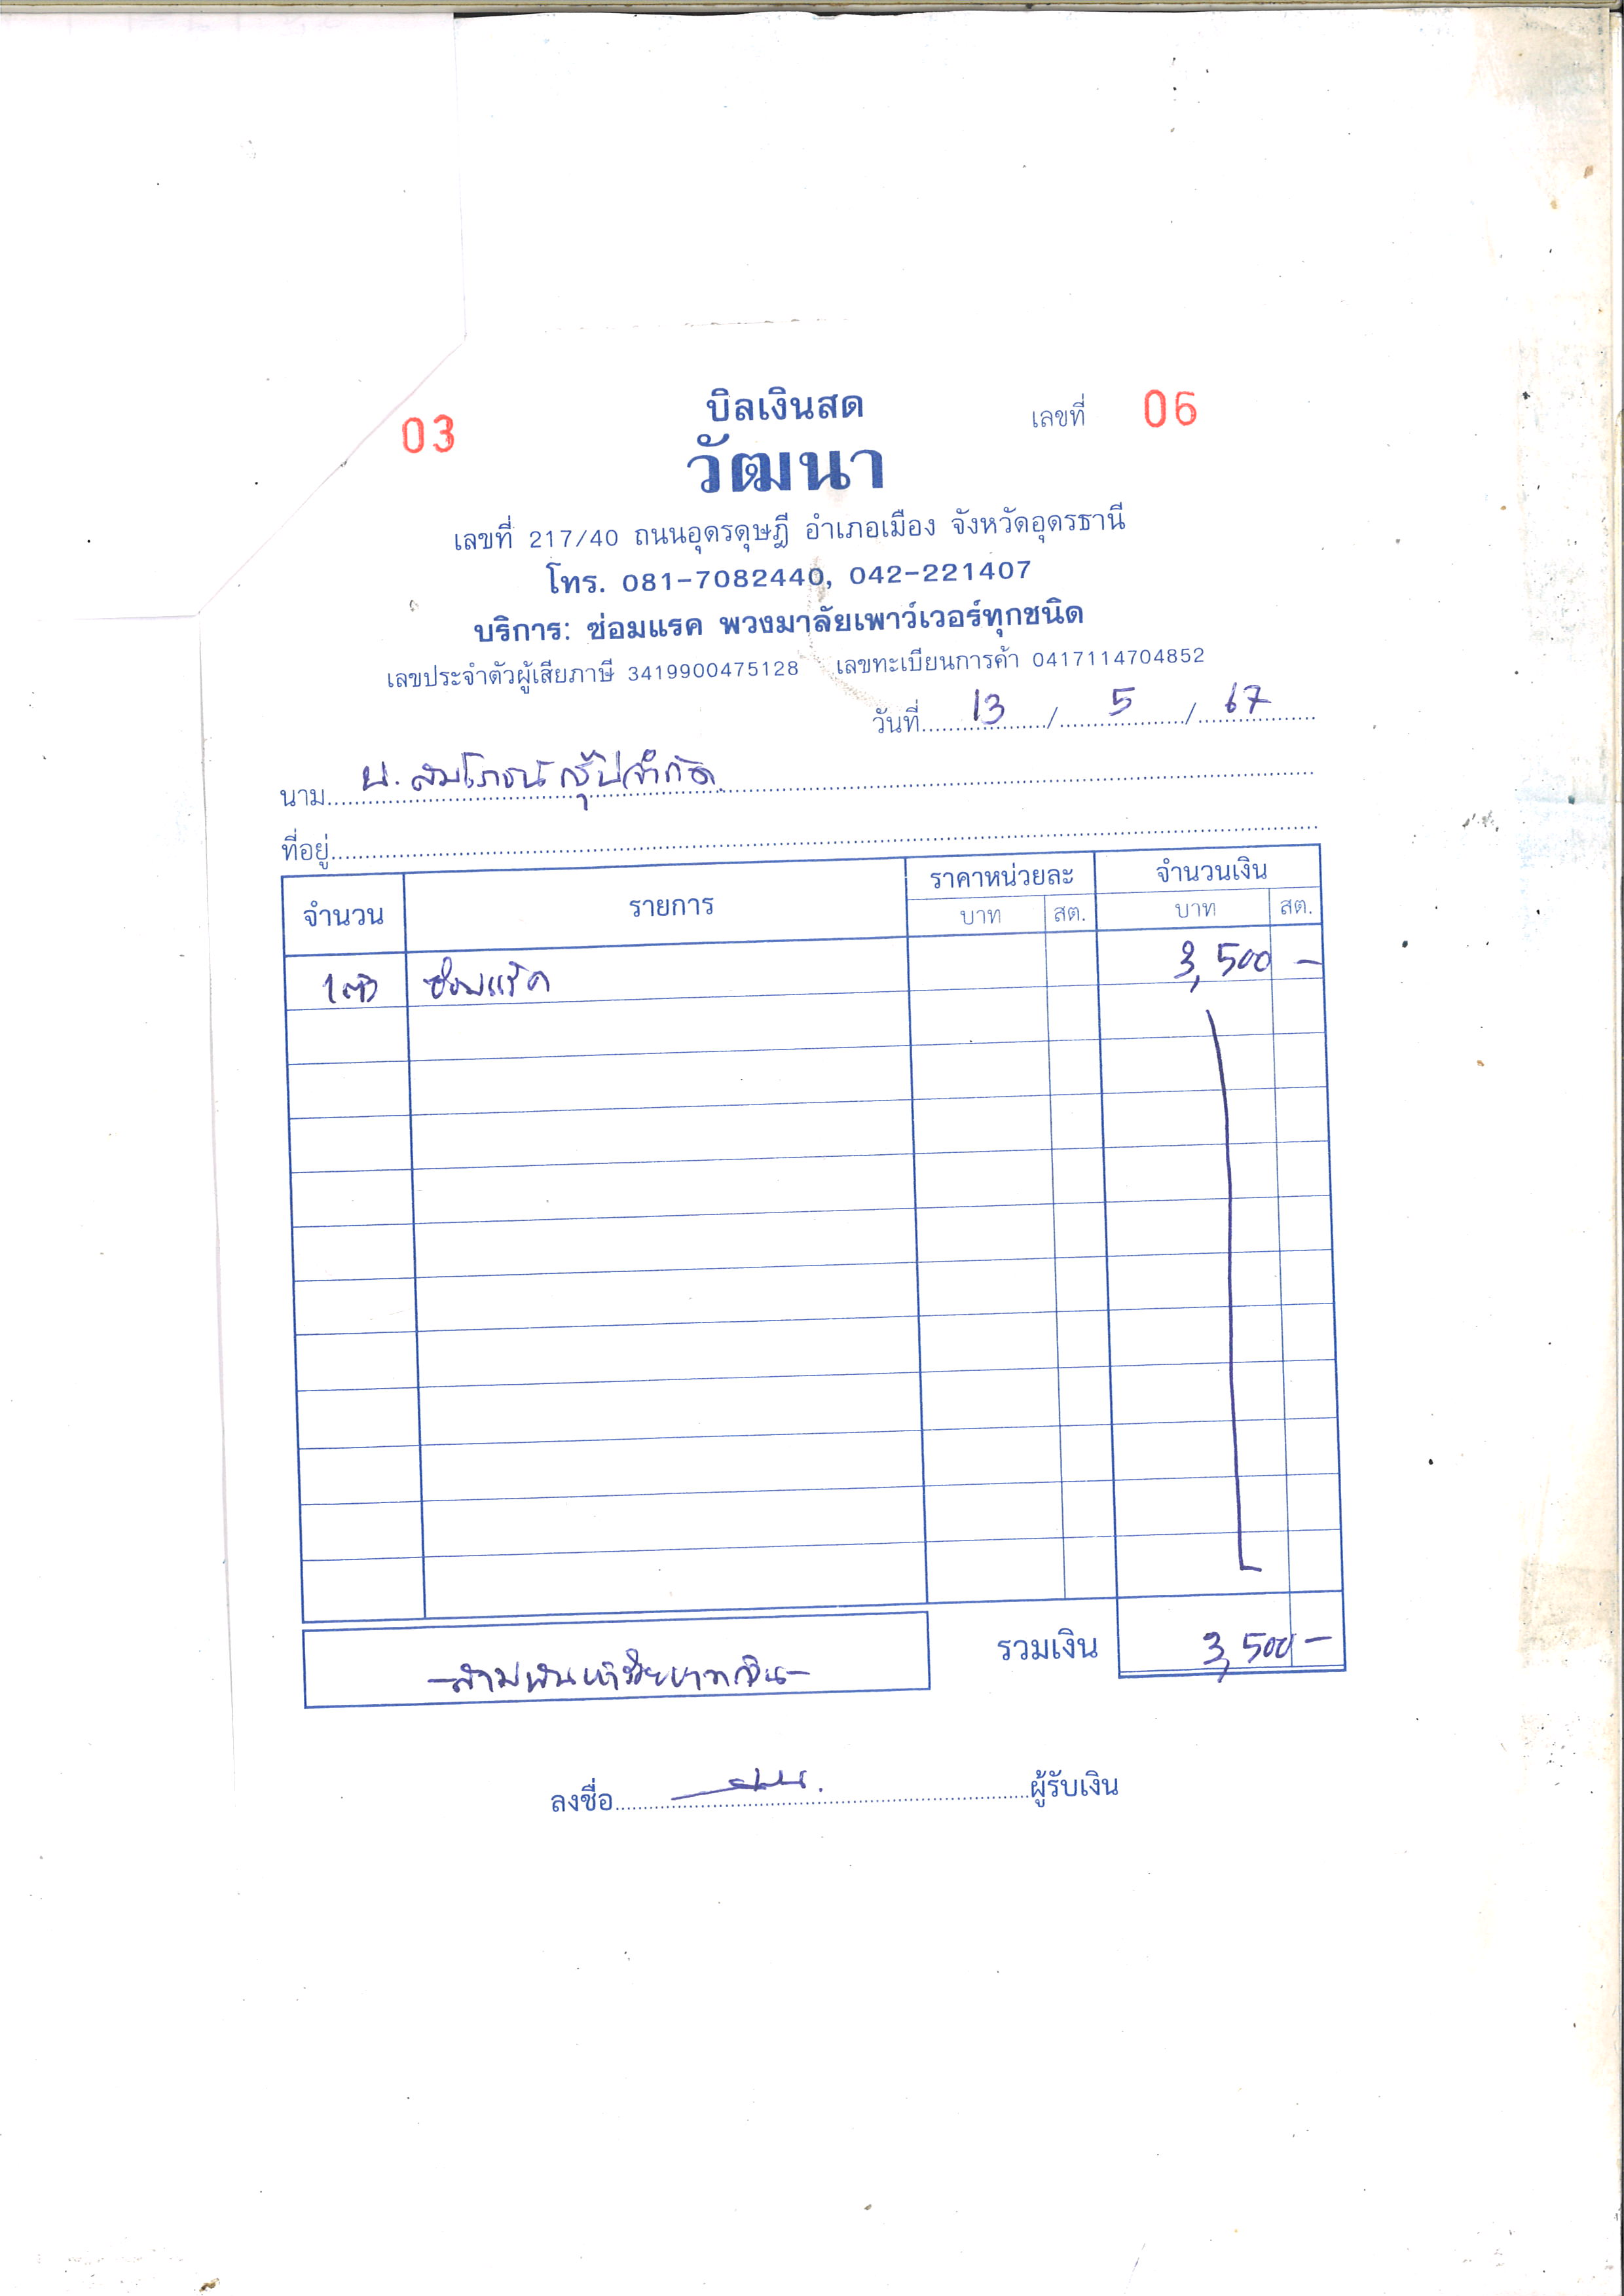 03
บิลเงินสด
เลขที่ 06
วัฒนา
เลขที่ 217/40 ถนนอุดรดุษฎี อำเภอเมือง จังหวัดอุดรธานี
โทร. 081-7082440, 042-221407
บริการ: ซ่อมแรค พวงมาลัยเพาว์เวอร์ทุกชนิด
เลขประจำตัวผู้เสียภาษี 3419900475128 เลขทะเบียนการค้า 0417114704852
วันที่ 13 / 5 / 67
นาม บ. สมโภชน์กรุ้ปจำกัด
ที่อยู่
จำนวน รายการ ราคาหน่วยละ จำนวนเงิน
บาท สต. บาท สต.
1 ตัว ซ่อมแร็ค 3,500 -
รวมเงิน 3,500 -
-สามพันห้าร้อยบาทถ้วน-
ลงชื่อ ผู้รับเงิน